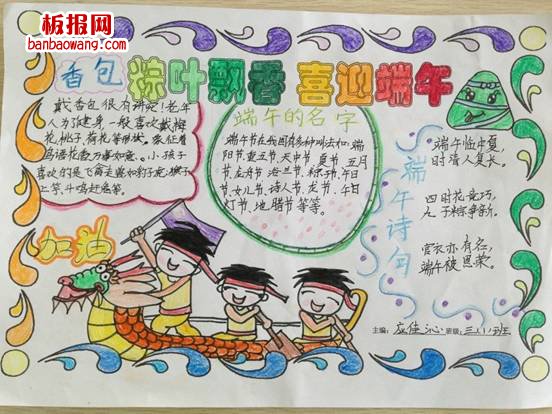 板报网
banbaowang.com
粽叶飘香 喜迎端午
香包
戴香包很有讲究！老年
人为了健身，一般喜欢戴梅
花、桃子、荷花等形状。象征着
鸟语花香万事如意。小孩子
喜欢的是飞禽走兽如豹子虎、猴子
上竿、斗鸡赶兔等。
端午的名字
端午节在我国有多种叫法如：端
阳节、重五节、天中节、夏节、五月
节、龙舟节、浴兰节、粽子节、午日
节、女儿节、诗人节、龙节、午日
灯节、地腊节等等。
端午诗句
端午临中夏，
时清人复长。
四时花竞巧，
九子粽争新。
宫衣亦有名，
端午被恩荣。
加油
主编：应佳沁 班级：三(1)班